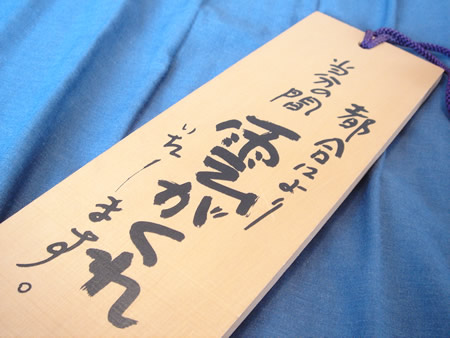 都合により
当分の間
雲がくれ
いたします。